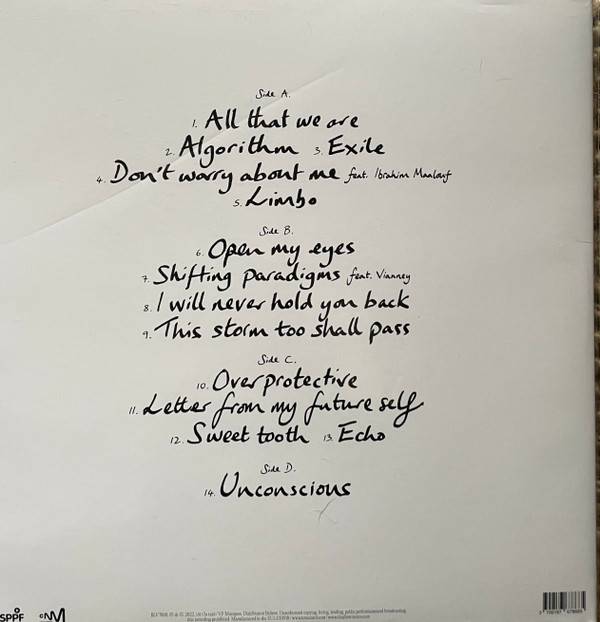 Side A.
1. All that we are
2. Algorithm 3. Exile
4. Don't worry about me feat. Ibrahim Maalouf
5. Limbo
Side B.
6. Open my eyes
7. Shifting paradigms feat. Vianney
8. I will never hold you back
9. This storm too shall pass
Side C.
10. Overprotective
11. Letter from my future self
12. Sweet tooth 13. Echo
Side D.
14. Unconscious
SPPF